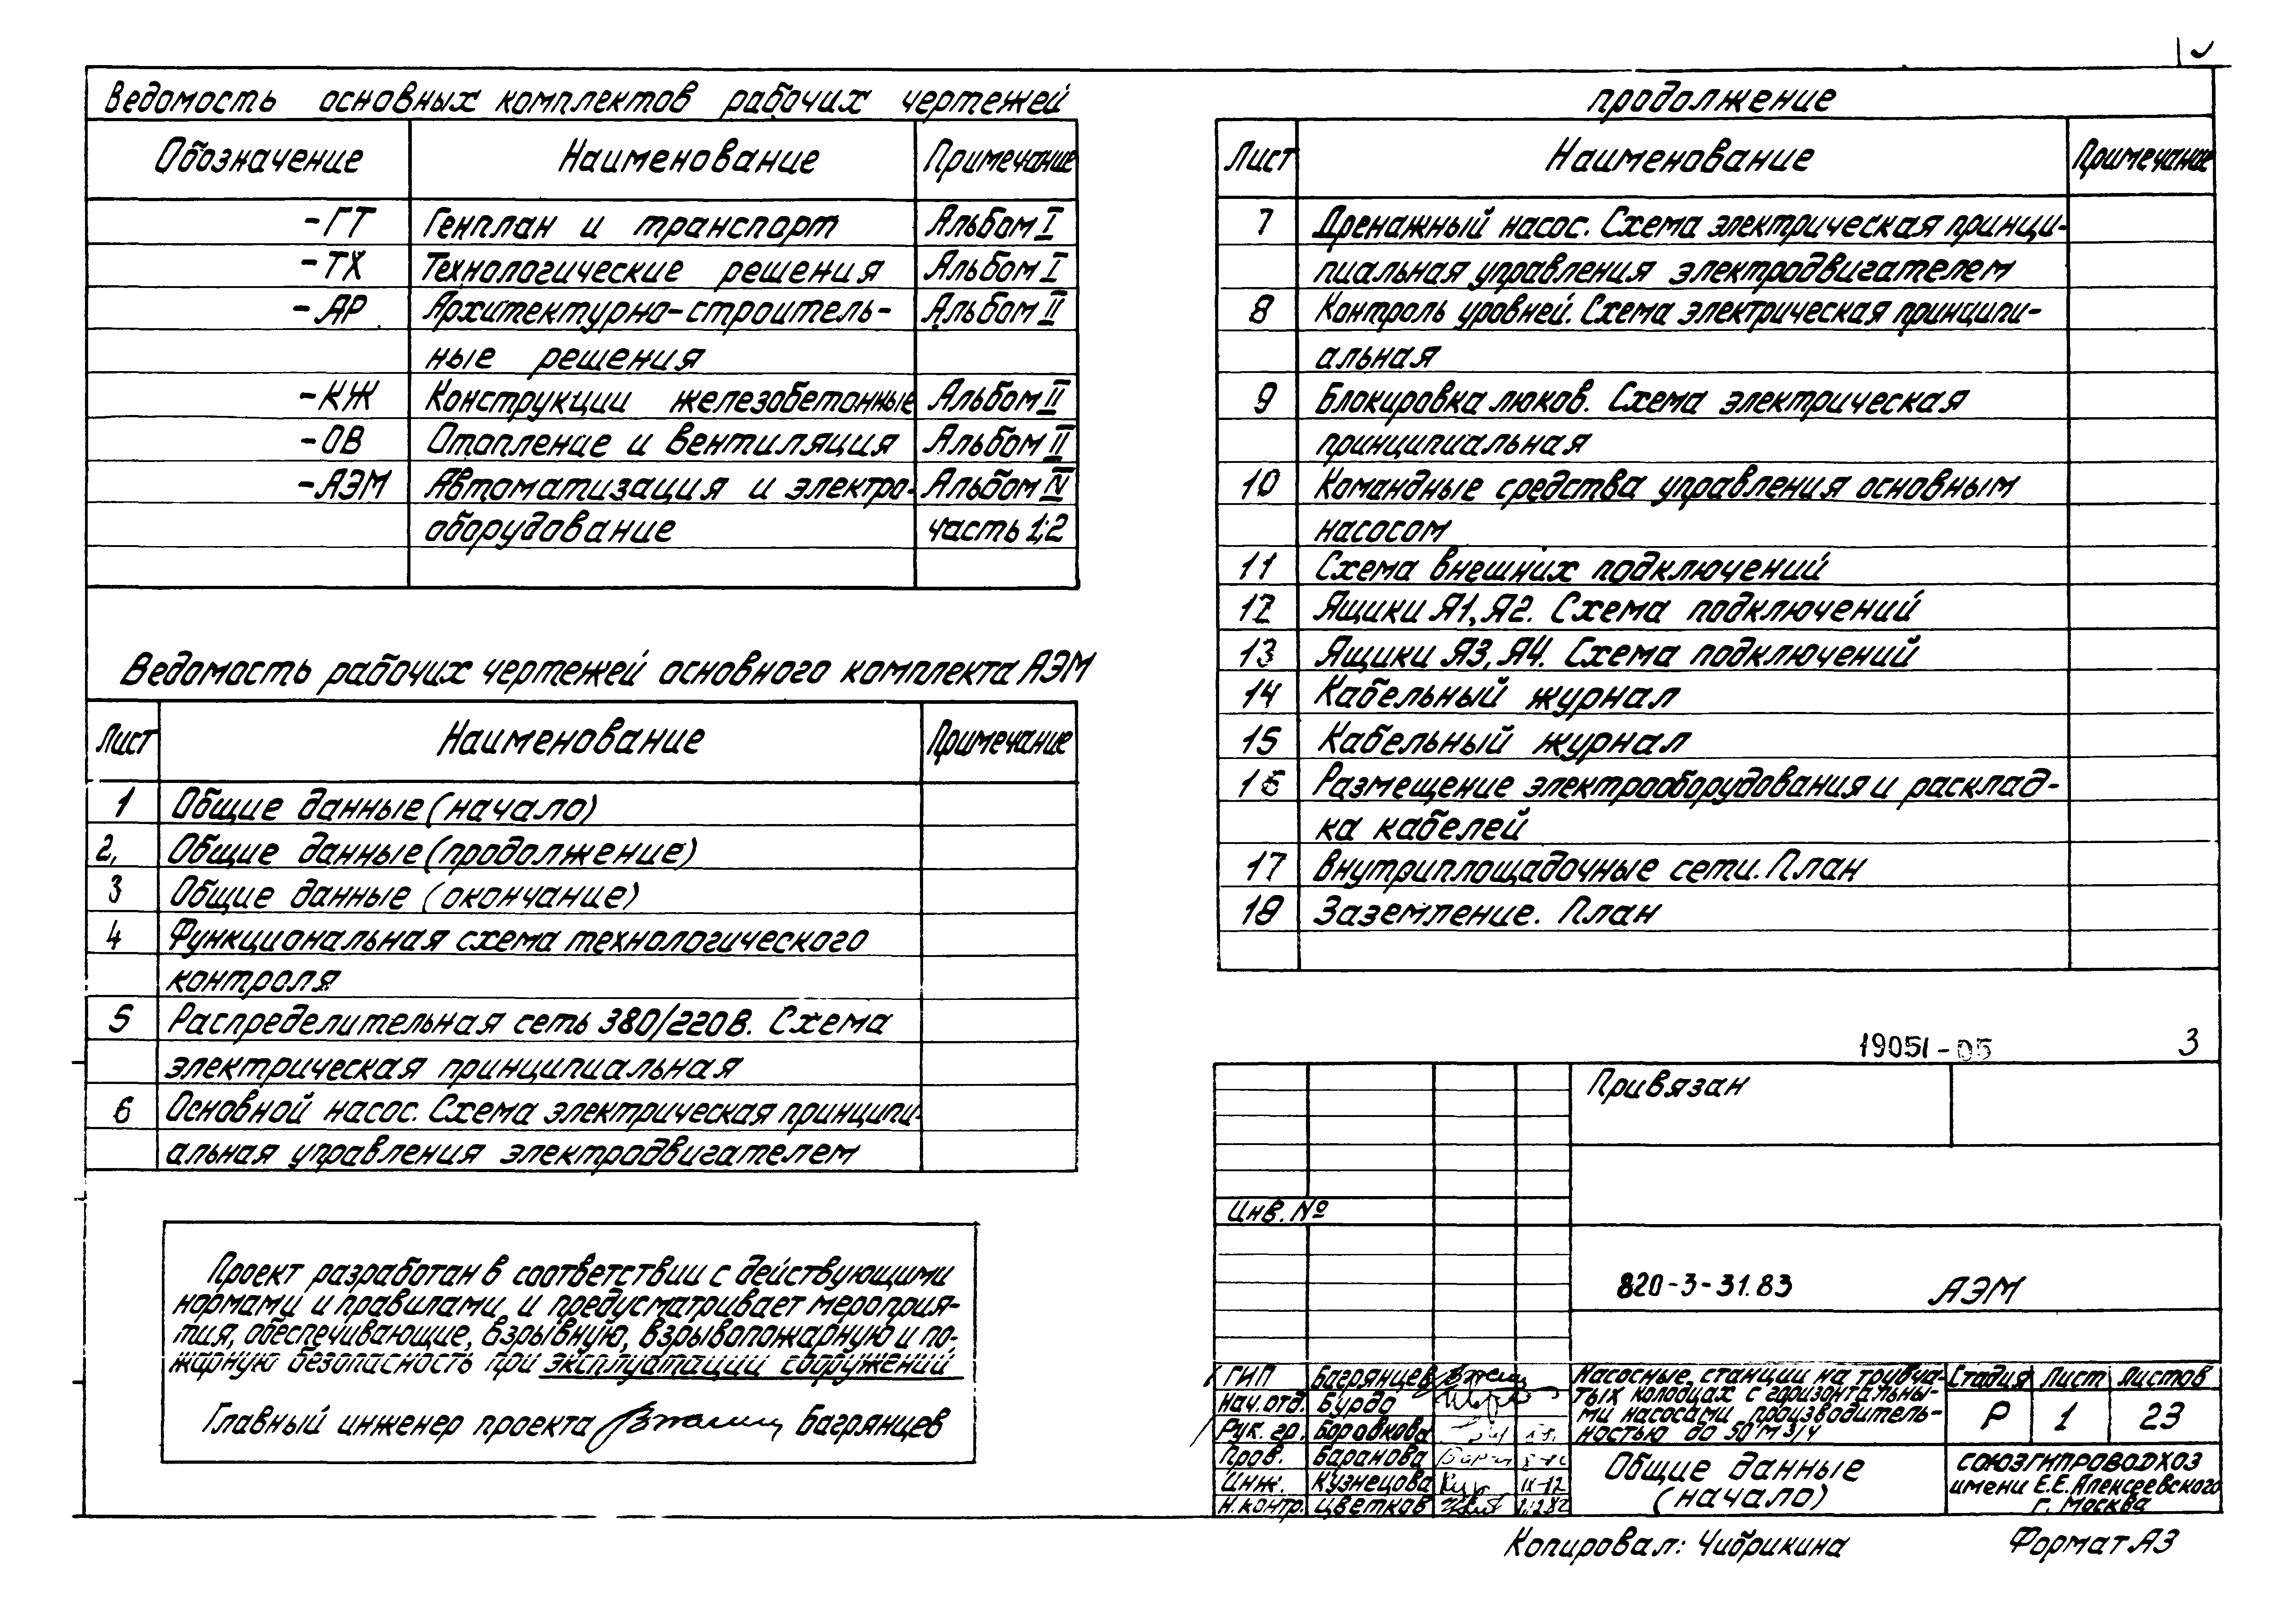 Ведомость основных комплектов рабочих чертежей
Обозначение Наименование Примечание
-ГТ Генплан и транспорт Альбом I
-ТХ Технологические решения Альбом I
-АР Архитектурно-строитель- Альбом II
ные решения
-КЖ Конструкции железобетонные Альбом II
-ОВ Отопление и вентиляция Альбом II
-АЭМ Автоматизация и электро- Альбом IV
оборудование часть 1;2
Ведомость рабочих чертежей основного комплекта АЭМ
Лист Наименование Примечание
1 Общие данные (начало)
2, Общие данные (продолжение)
3 Общие данные (окончание)
4 Функциональная схема технологического
контроля
5 Распределительная сеть 380/220В. Схема
электрическая принципиальная
6 Основной насос. Схема электрическая принципи-
альная управления электродвигателем
Проект разработан в соответствии с действующими
нормами и правилами и предусматривает мероприя-
тия, обеспечивающие, взрывную, взрывопожарную и по-
жарную безопасность при эксплуатации сооружений
Главный инженер проекта Багрянцев
продолжение
Лист Наименование Примечание
7 Дренажный насос. Схема электрическая принци-
пиальная управления электродвигателем
8 Контроль уровней. Схема электрическая принципи-
альная
9 Блокировка люков. Схема электрическая
принципиальная
10 Командные средства управления основным
насосом
11 Схема внешних подключений
12 Ящики Я1, Я2. Схема подключений
13 Ящики Я3, Я4. Схема подключений
14 Кабельный журнал
15 Кабельный журнал
16 Размещение электрооборудования и расклад-
ка кабелей
17 Внутриплощадочные сети. План
18 Заземление. План
19051-05 3
Привязан
Инв. №
820-3-31.83 АЭМ
ГИП Багрянцев
Нач. отд. Бурдо
Рук. гр. Боровкова
Пров. Баранова
Инж. Кузнецова
Н. контр. Цветков
Насосные станции на трубча-
тых колодцах с горизонтальны-
ми насосами производитель-
ностью до 50 м3/ч
Стадия Лист Листов
Р 1 23
Общие данные
(начало)
СОЮЗГИПРОВОДХОЗ
имени Е.Е. Алексеевского
г. Москва
Копировал: Чибрикина Формат А3